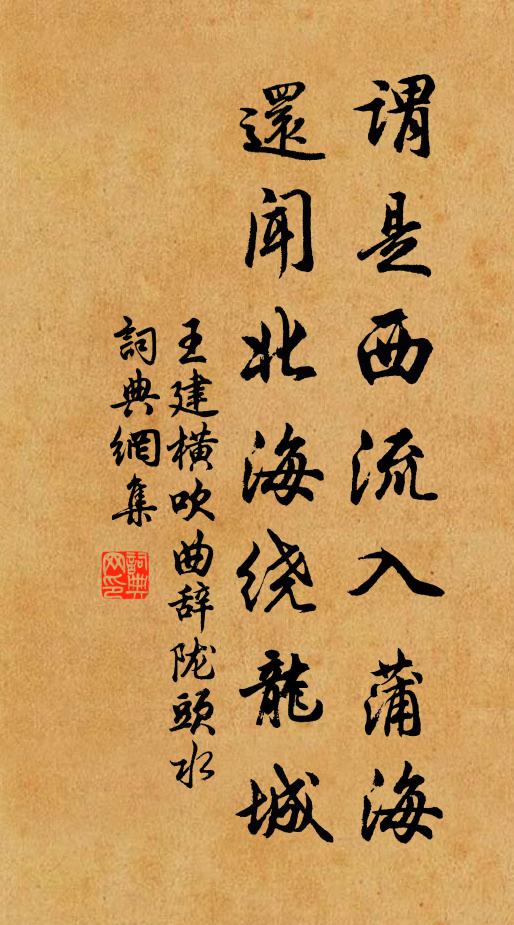 謂是西流入蒲海
還闻北海绕龍城
王建橫吹曲辞陇頭水
詞典網集
詞典网印